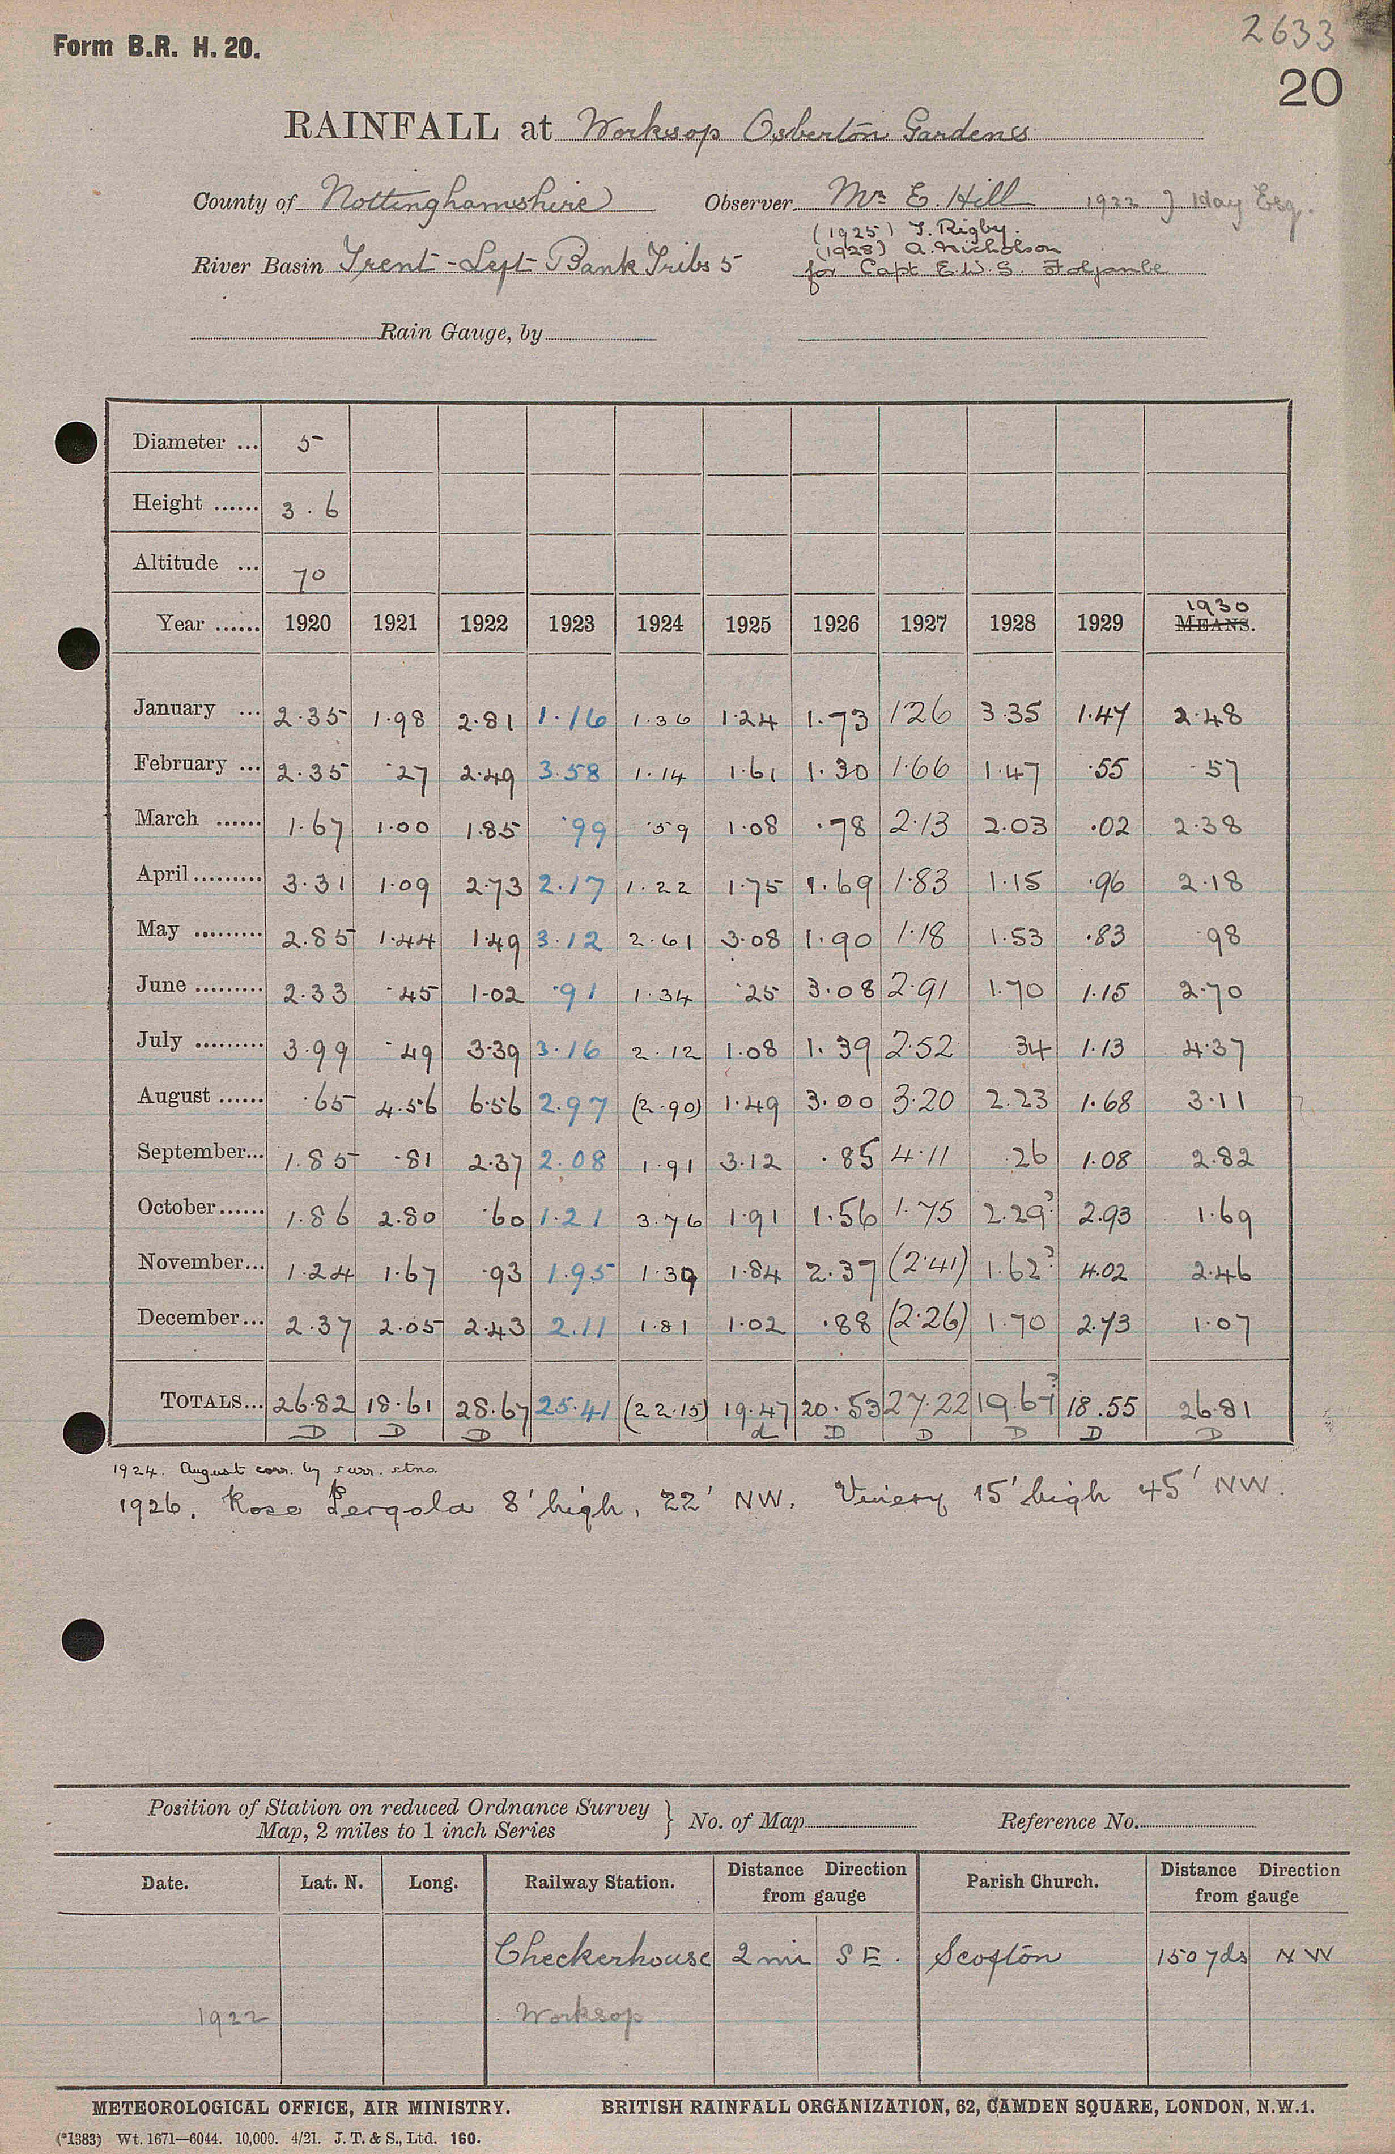 Form B.R. H. 20.
2633
20
RAINFALL at Worksop Osberton Gardens
County of Nottinghamshire Observer Mr. E. Hill 1922 J May Esq.
(1925) T. Rigby.
(1928) A. Nicholson
River Basin Trent - Left Bank Tribs 5 for Capt E.W.S. Foljambe
Rain Gauge, by
Diameter ... 5
Height ...... 3.6
Altitude ... 70
Year ...... 1920 1921 1922 1923 1924 1925 1926 1927 1928 1929 1930 MEANS.
January ... 2.35 1.98 2.81 1.16 1.36 1.24 1.73 1.26 3.35 1.47 2.48
February ... 2.35 .27 2.49 3.58 1.14 1.61 1.30 1.66 1.47 .55 .57
March ...... 1.67 1.00 1.85 .99 .59 1.08 .78 2.13 2.03 .02 2.38
April ......... 3.31 1.09 2.73 2.17 1.22 1.75 1.69 1.83 1.15 .96 2.18
May ......... 2.85 1.44 1.49 3.12 2.61 3.08 1.90 1.18 1.53 .83 .98
June ......... 2.33 .45 1.02 .91 1.34 .25 3.08 2.91 1.70 1.15 2.70
July ......... 3.99 .49 3.39 3.16 2.12 1.08 1.39 2.52 .34 1.13 4.37
August ...... .65 4.56 6.56 2.97 (2.90) 1.49 3.00 3.20 2.23 1.68 3.11
September... 1.85 .81 2.37 2.08 1.91 3.12 .85 4.11 .26 1.08 2.82
October...... 1.86 2.80 .60 1.21 3.76 1.91 1.56 1.75 2.29? 2.93 1.69
November... 1.24 1.67 .93 1.95 1.39 1.84 2.37 (2.41) 1.62? 4.02 2.46
December... 2.37 2.05 2.43 2.11 1.81 1.02 .88 (2.26) 1.70 2.73 1.07
TOTALS... 26.82 18.61 28.67 25.41 (22.15) 19.47 20.53 27.22 19.67? 18.55 26.81
D D D d D D D D D
1924. August corr. by surr. stns.
1926. Rose Pergola 8' high, 22' NW. Vinery 15' high 45' NW.
Position of Station on reduced Ordnance Survey
Map, 2 miles to 1 inch Series } No. of Map Reference No.
Date. Lat. N. Long. Railway Station. Distance Direction from gauge Parish Church. Distance Direction from gauge
Checkerhouse 2 mi SE. Scofton 150 yds NW
1922 Worksop
METEOROLOGICAL OFFICE, AIR MINISTRY. BRITISH RAINFALL ORGANIZATION, 62, CAMDEN SQUARE, LONDON, N.W.1.
(*1383) Wt. 1671—6044. 10,000. 4/21. J. T. & S., Ltd. 160.